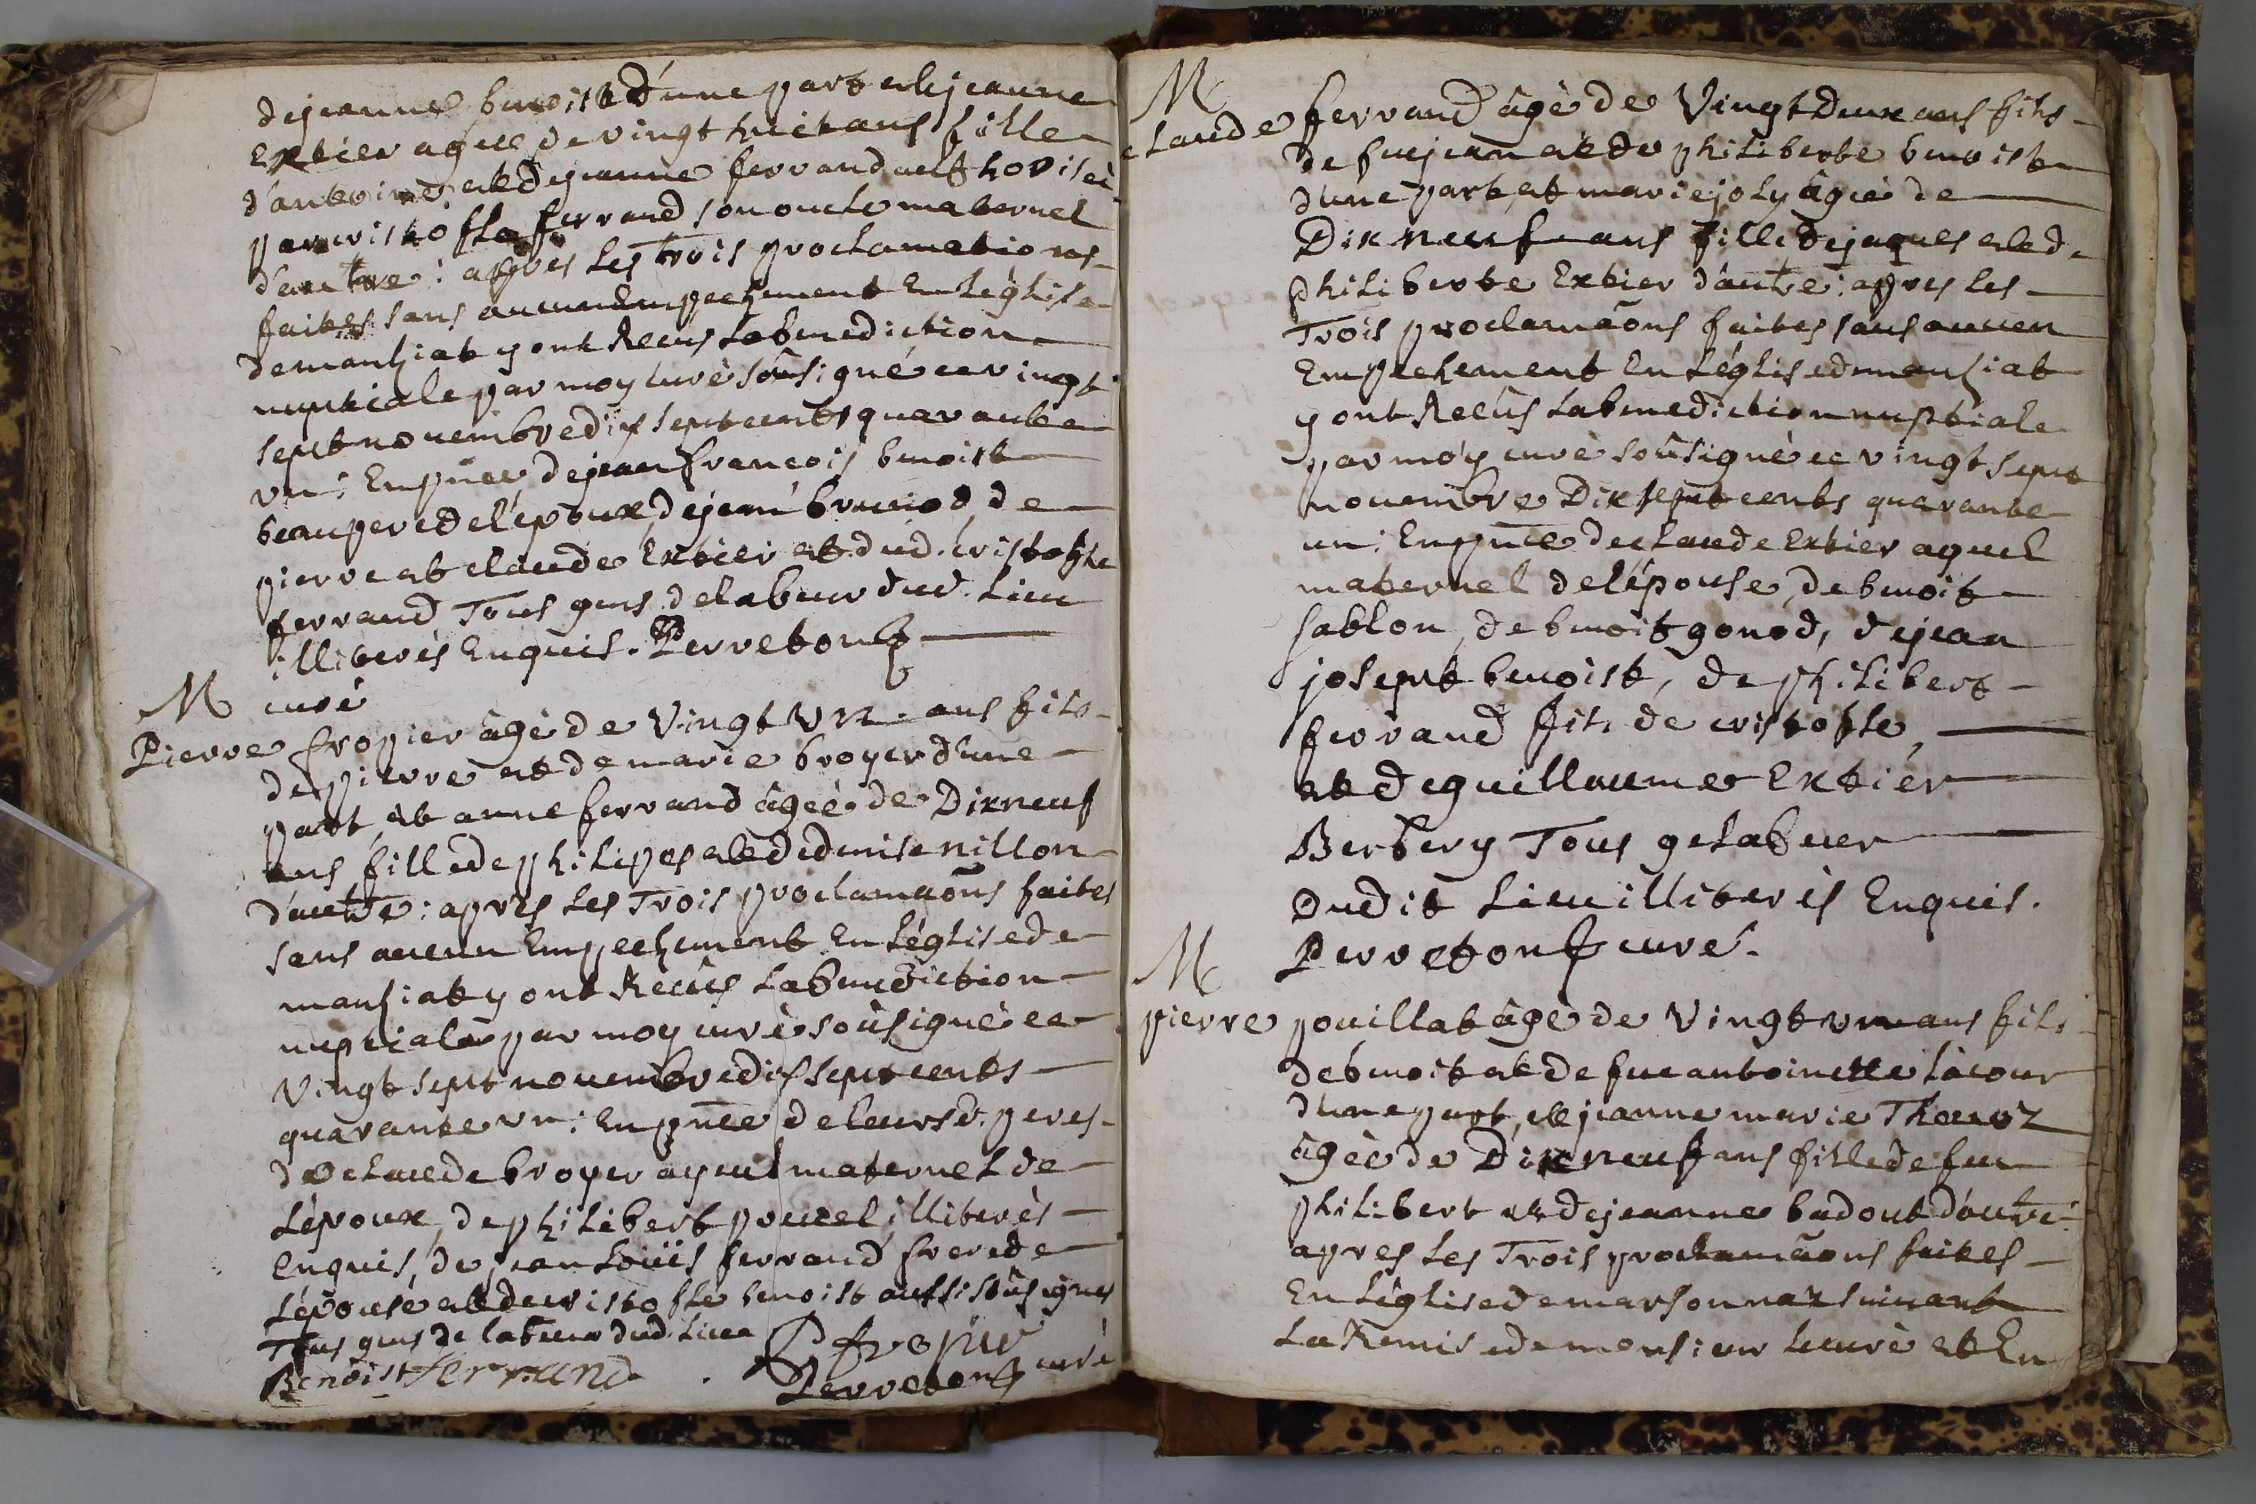 dejeanne benoist d'une part et jeanne
Extier agée de vingt huict ans fille
d'antoine et dejeanne ferrand authorisée
par cristofle ferrand son oncle maternel
d'autre : apres les trois proclamations
faites sans aucun Empechement En leglise
demanziat y ont Receus labenediction
nuptiale par moy curé soûsigné ce vingt
sept novembre dix sept cents quarante
un : En pñce dejean francois benoist
beaupere delépoux, dejean brunod, de
pierre et claude Extier et dud. cristophe
ferrand Tous gens delabeur dud. Lieu
illiterés Enquis. Perreton
curé
M
Pierre fropier âgé de Vingt Vn ans fils
depierre et de marie broyer d'une
part, et anne ferrand âgeé de Dixneuf
ans fille de philipes et de denise nillon
d'autre : apres les Trois proclamaõns faites
sans aucun Empechement En léglise de
manziat y ont Receûs labenediction
nuptiale par moy curé soûsigné ce
Vingt sept novembre dix sept cents
quarante vn : En pñce de leurs d. peres
de claude broyer ayeul maternel de
Lépoux, de philibert pourel illiterés
Enquis, de jean Loüis ferrand frere de
Lépouse et de cristofle benoist aussi soûsignés
Tous gens de labeur dud. Lieu
Benoist ferrand P fropié
Perreton curé
M
claude ferrand âgé de Vingt Deux ans fils
de feu jean et de philiberte benoist
d'une part, et marie joly âgeé de
Dix neuf ans fille dejaques et de
philiberte Extier d'autre : apres les
Trois proclamaõns faites sans aucun
Empechement En léglise demanziat
y ont Reeûs labenediction nuptiale
par moy curé soûsigné ce vingt sept
novembre Dix sept cents quarante
un : En pñce de claude Extier ayeul
maternel de lépouse, de benoit
sablon, de benoit gonod, dejean
josept benoist, de philibert
ferrand fils de cristofle,
et de guillaume Extier
Berbery Tous g delabeur
Dudit Lieu illiterés Enquis.
Perreton curé.
M
pierre pouillat âgé de Vingt vn ans fils
debenoit et de feue antoinette lacour
d'une part, et jeanne marie Thevoz
âgeé de Dix neuf ans fille de feu
philibert et dejeanne badout d'autre :
apres les Trois proclamaõns faites
En léglise de marsonnaz suivant
La Remise de monsieur lecuré et En